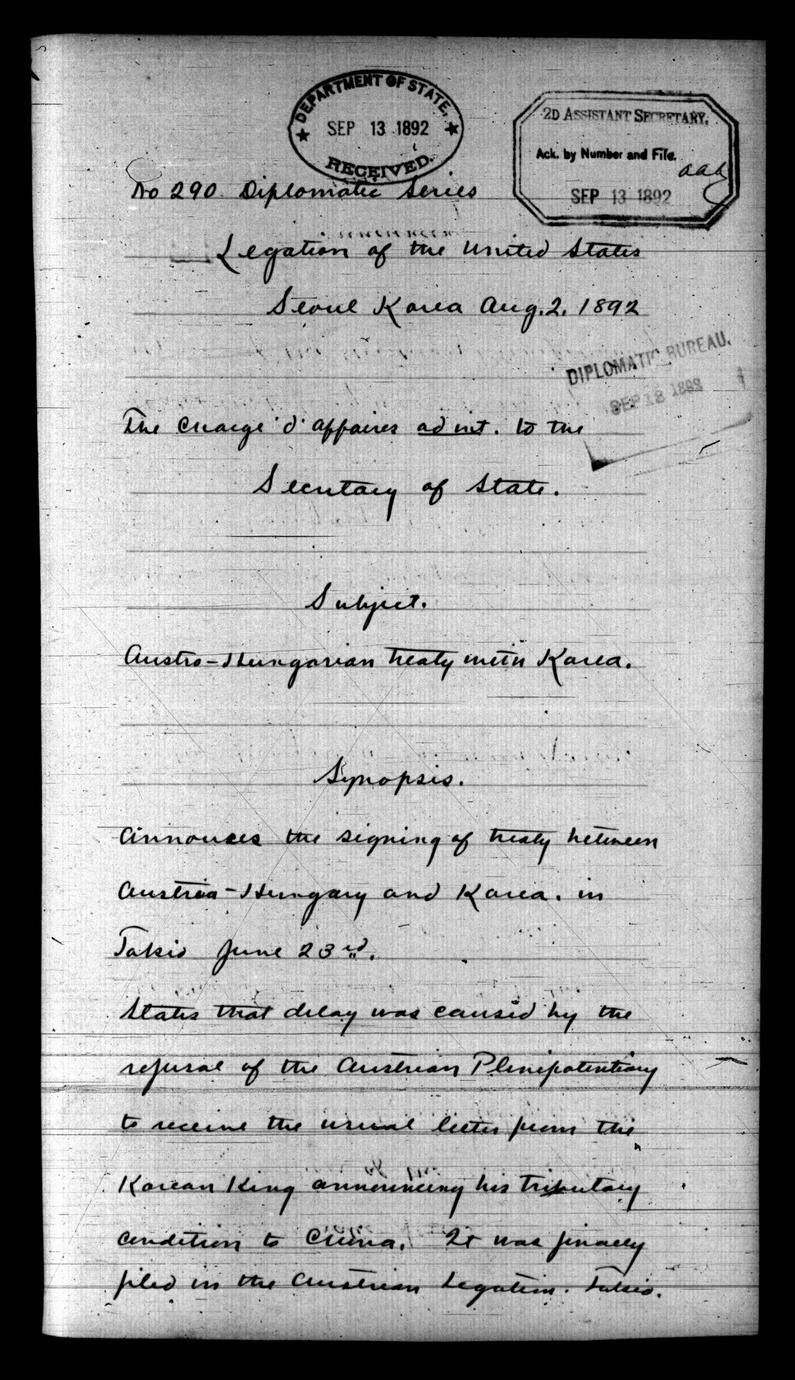 DEPARTMENT OF STATE,
SEP 13 1892
RECEIVED.
2D ASSISTANT SECRETARY.
Ack. by Number and File.
SEP 13 1892
No 290 Diplomatic Series
Legation of the United States
Seoul Korea Aug. 2. 1892
DIPLOMATIC BUREAU.
SEP 13 1892
The Chargé d'affaires ad int. to the
Secretary of State.
Subject.
Austro-Hungarian treaty with Korea.
Synopsis.
Annouces the signing of treaty between
Austria-Hungary and Korea. in
Tokio June 23rd.
States that delay was caused by the
refusal of the Austrian Plenipotentiary
to receive the usual letter from the
Korean King announcing his tributary
condition to China. It was finally
filed in the Austrian Legation. Tokio.